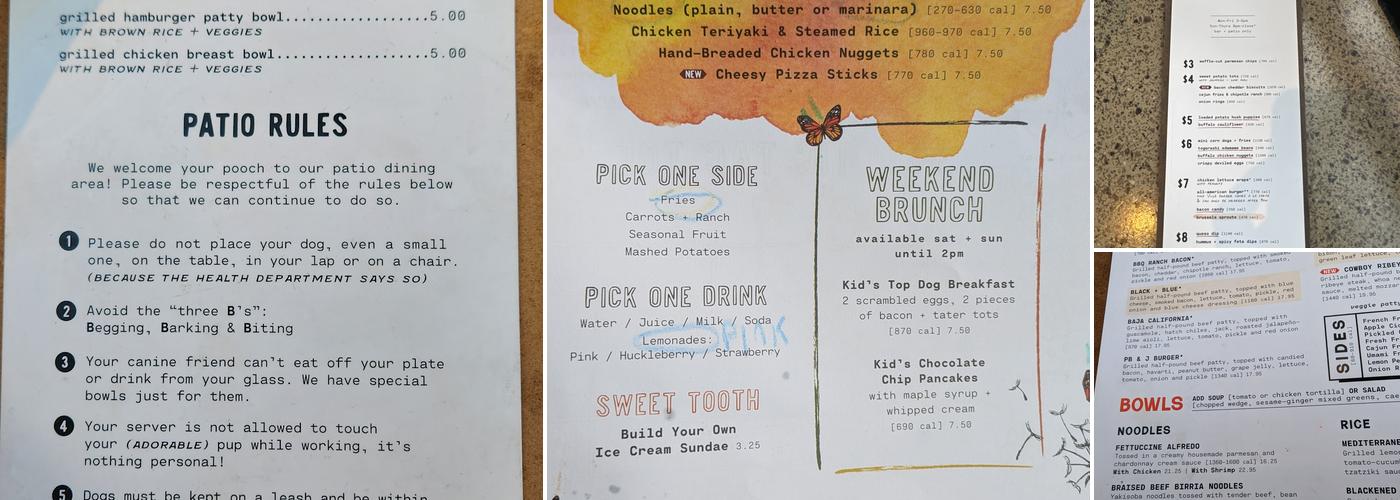 grilled hamburger patty bowl..................5.00
WITH BROWN RICE + VEGGIES
grilled chicken breast bowl...................5.00
WITH BROWN RICE + VEGGIES
PATIO RULES
We welcome your pooch to our patio dining
area! Please be respectful of the rules below
so that we can continue to do so.
1 Please do not place your dog, even a small
one, on the table, in your lap or on a chair.
(BECAUSE THE HEALTH DEPARTMENT SAYS SO)
2 Avoid the “three B’s”:
Begging, Barking & Biting
3 Your canine friend can’t eat off your plate
or drink from your glass. We have special
bowls just for them.
4 Your server is not allowed to touch
your (ADORABLE) pup while working, it’s
nothing personal!
5 Dogs must be kept on a leash and be within
Noodles (plain, butter or marinara) [270-630 cal] 7.50
Chicken Teriyaki & Steamed Rice [960-970 cal] 7.50
Hand-Breaded Chicken Nuggets [780 cal] 7.50
NEW Cheesy Pizza Sticks [770 cal] 7.50
PICK ONE SIDE
Fries
Carrots + Ranch
Seasonal Fruit
Mashed Potatoes
PICK ONE DRINK
Water / Juice / Milk / Soda
Lemonades:
Pink / Huckleberry / Strawberry
PINK
SWEET TOOTH
Build Your Own
Ice Cream Sundae 3.25
WEEKEND
BRUNCH
available sat + sun
until 2pm
Kid’s Top Dog Breakfast
2 scrambled eggs, 2 pieces
of bacon + tater tots
[870 cal] 7.50
Kid’s Chocolate
Chip Pancakes
with maple syrup +
whipped cream
[690 cal] 7.50
bar + patio only
$3 waffle-cut parmesan chips
$4 sweet potato tots
NEW bacon cheddar biscuits
cajun fries & chipotle ranch
onion rings
$5 loaded potato hush puppies
buffalo cauliflower
$6 mini corn dogs + fries
togarashi edamame beans
buffalo chicken nuggets
crispy deviled eggs
$7 chicken lettuce wraps*
all-american burger**
bacon candy
brussels sprouts
$8 queso dip
hummus + spicy feta dips
BBQ RANCH BACON*
Grilled half-pound beef patty, topped with smoked
bacon, cheddar, chipotle ranch, lettuce, tomato,
pickle and red onion 17.95
BLACK + BLUE*
Grilled half-pound beef patty, topped with blue
cheese, smoked bacon, lettuce, tomato, pickle, red
onion and blue cheese dressing [1180 cal] 17.95
BAJA CALIFORNIA*
Grilled half-pound beef patty, topped with
guacamole, hatch chiles, jack, roasted jalapeño-
lime aioli, lettuce, tomato, pickle and red onion
[870 cal] 17.95
PB & J BURGER*
Grilled half-pound beef patty, topped with candied
bacon, havarti, peanut butter, grape jelly, lettuce,
tomato, onion and pickle [1340 cal] 17.95
green leaf lettuce,
NEW COWBOY RIBEY
Grilled half-pound
ribeye steak,
sauce, melted
[1440 cal] 19.95
veggie patty
SIDES
French Fr
Apple Ci
Fresh Fr
Cajun Fr
Umami F
Lemon Pe
Onion R
BOWLS ADD SOUP [tomato or chicken tortilla] OR SALAD
[chopped wedge, sesame-ginger mixed greens, cae
NOODLES
FETTUCCINE ALFREDO
Tossed in a creamy housemade parmesan and
chardonnay cream sauce [1360-1600 cal] 16.25
With Chicken 21.25 | With Shrimp 22.95
BRAISED BEEF BIRRIA NOODLES
Yakisoba noodles tossed with tender beef, bean
RICE
MEDITERRANE
Grilled lemon
tomato-cucum
tzatziki sauce
BLACKENED